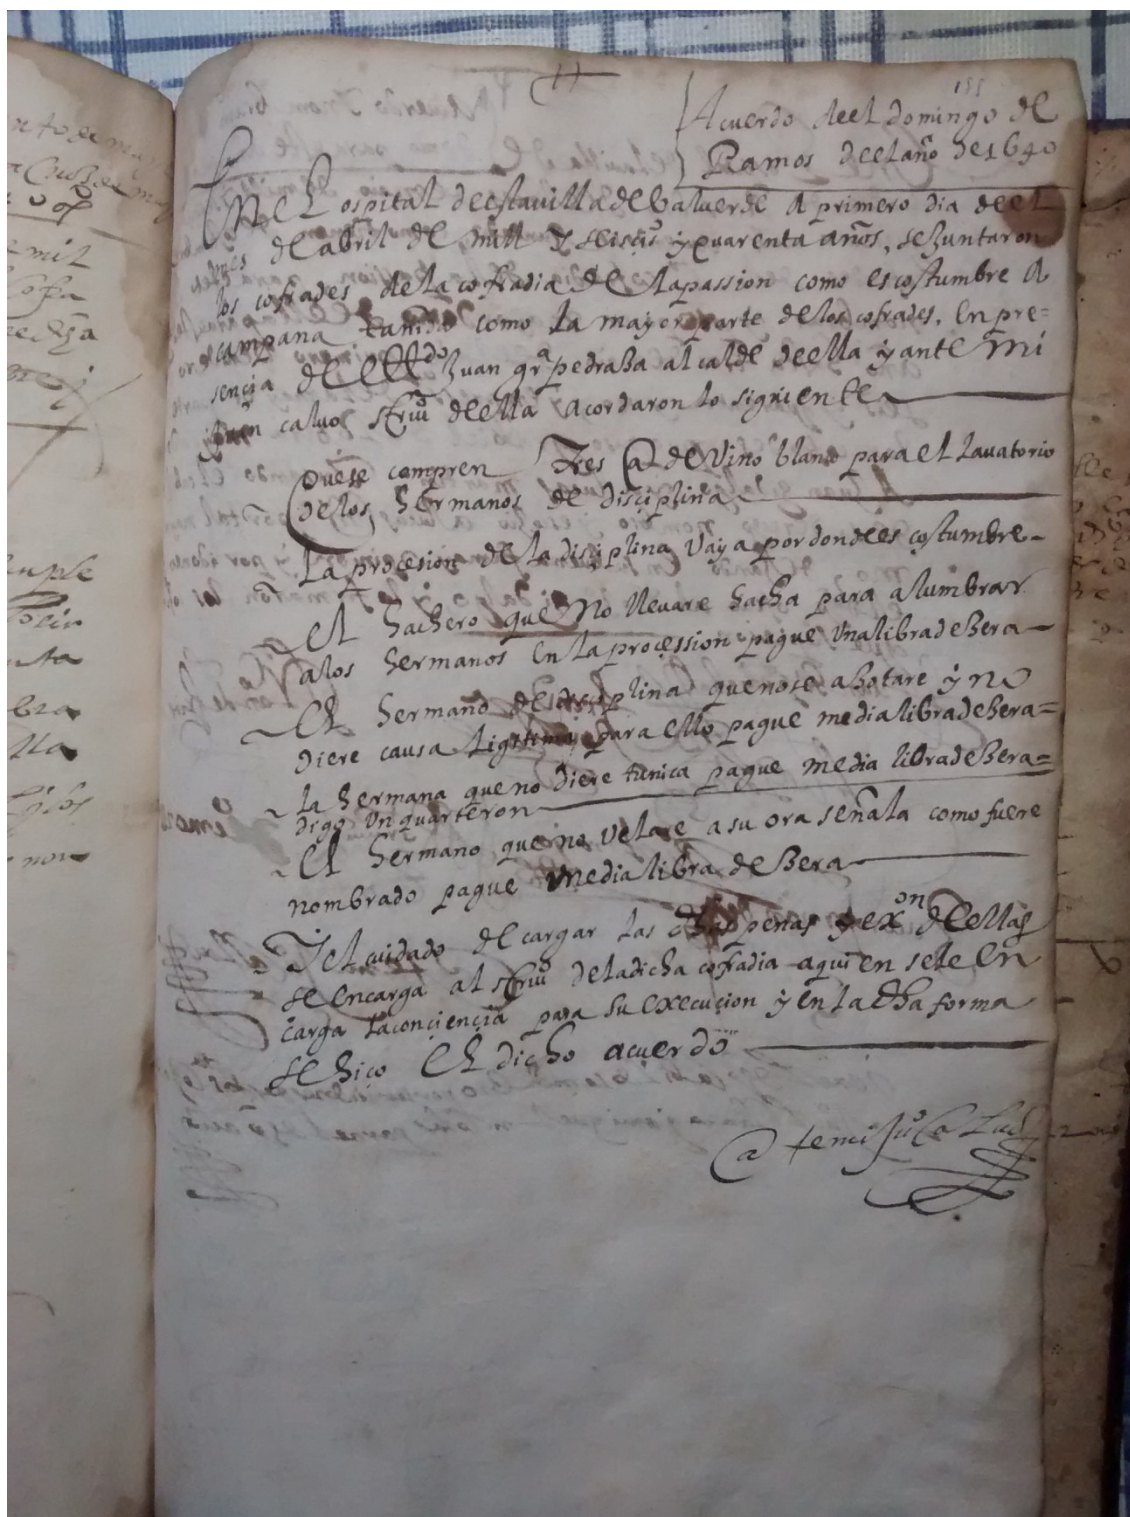 155
Acuerdo deel domingo de
Ramos deel año de 1640
En el ospital de esta villa de balverde a primero dia deel
mes de abril de mill y seisçⁱᵒˢ y quarenta años, se juntaron
los cofrades de la cofradia de la passion como es costumbre a
campana tanida como la mayor parte de los cofrades. En pre=
sençia de el Lldo Juan grª pedraza alcalde de ella y ante mi
juan calvo scriuº de ella acordaron lo siguiente
Que se compren Tres @ de vino blanco para el lavatorio
de los hermanos de disçiplina
La proçesion de la disçiplina vaya por donde es costumbre
el hachero que no llevare hacha para alumbrar
a los hermanos en la proçession pague una libra de zera
el hermano de disçiplina que no se azotare y no
diere causa ligitima para ello pague media libra de zera=
la hermana que no diere tunica pague media libra de zera=
digo un quarteron
el hermano que no velare a su ora señala como fuere
nombrado pague media libra de zera
Y el cuidado de cargar las dhas penas y exon de ellas
se encarga al scriuº de la dicha cofradia a quien se le en
carga la conçiençia para su execucion y en la dha forma
se hiço el dicho acuerdo
@ te mi Juº Calvo